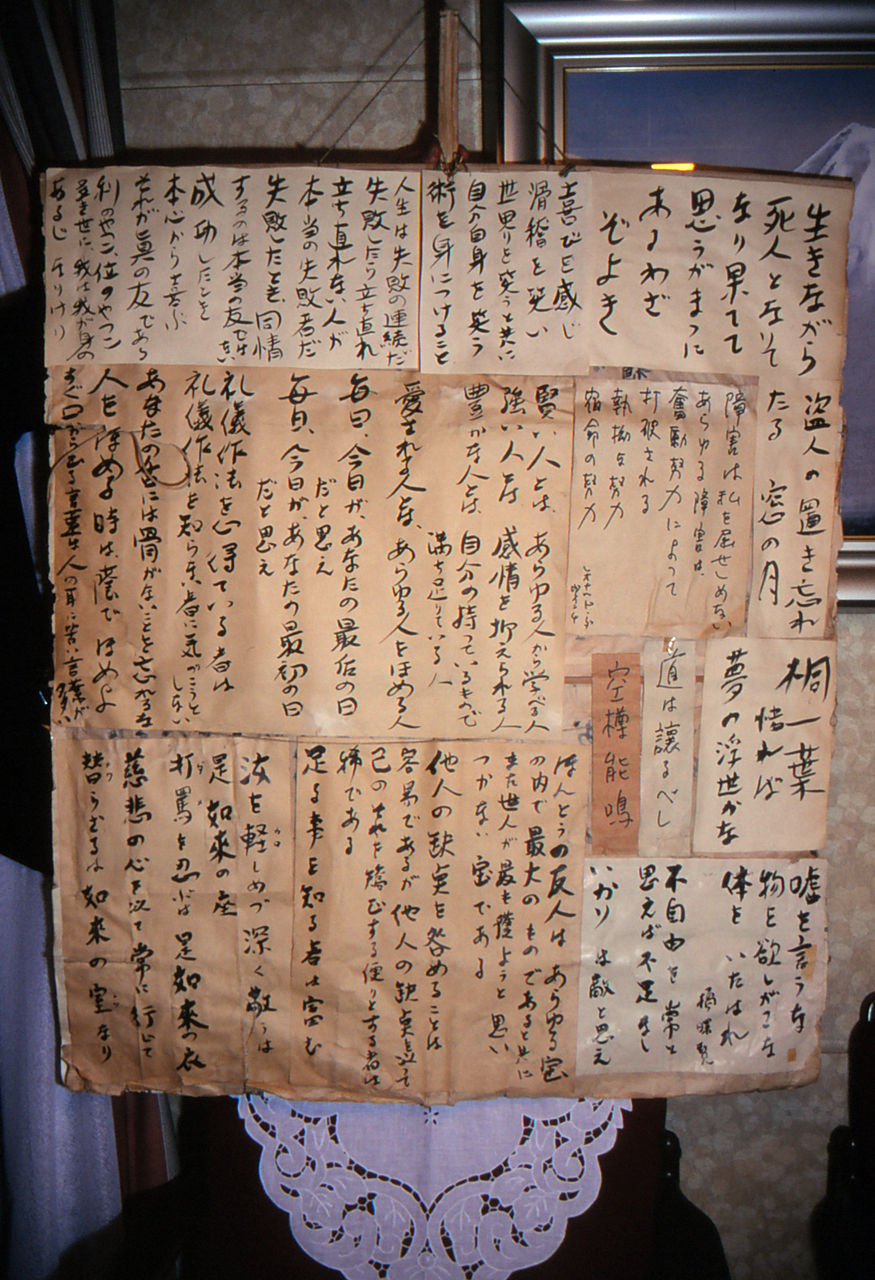 生きながら
死人となりて
なり果てて
思うがまゝに
あるわざ
ぞよき
喜びを感じ
滑稽を笑い
世界りと笑うと共に
自分自身を笑う
術を身につけること
人生は失敗の連続だ
失敗したら立ち直れ
立ち直れない人が
本当の失敗者だ
失敗したとき、同情
するのは本当の友ではない
成功したことを
本心から喜ぶ
それが真の友である
あるじなりけり
盗人の置き忘れ
たる 窓の月
障害は私を屈せしめない
あらゆる障害は、
奮励努力によって
打破される
執拗な努力
宿命の努力
賢い人とは、あらゆる人から学べる人
強い人とは、感情を抑えられる人
豊かな人とは、自分の持っているもので
満ち足りている人
愛される人とは、あらゆる人をほめる人
毎日、今日が、あなたの最后の日
だと思え
毎日、今日が、あなたの最初の日
だと思え
礼儀作法を心得ている者は
礼儀作法を知らない者に気がつこうと
しない
あなたの舌には骨がないことを忘れるな
人をほめる時は、蔭でほめよ
すぐ口から出る言葉は人の耳に苦い言葉が
多い
桐一葉
惜れば
夢の浮世かな
道は譲るべし
空樽能鳴
嘘を言うな
物を欲しがるな
体をいたはれ
橘曙覧
不自由を常と
思えば不足なし
いかりは敵と思え
ほんとうの友人はあらゆる宝
の内で最大のものであると共に
また世人が最も獲ようと思い
つかない宝である
他人の缺点を咎めることは
容易であるが他人の缺点を以て
己のそれを矯むする便りとする者は
稀である
足る事を知る者は富む
汝を軽しめづ深く敬うは
是如来の座
打罵を忍ぶは是如来の衣
慈悲の心を以て常に行じて
替らざるは如来の室なり